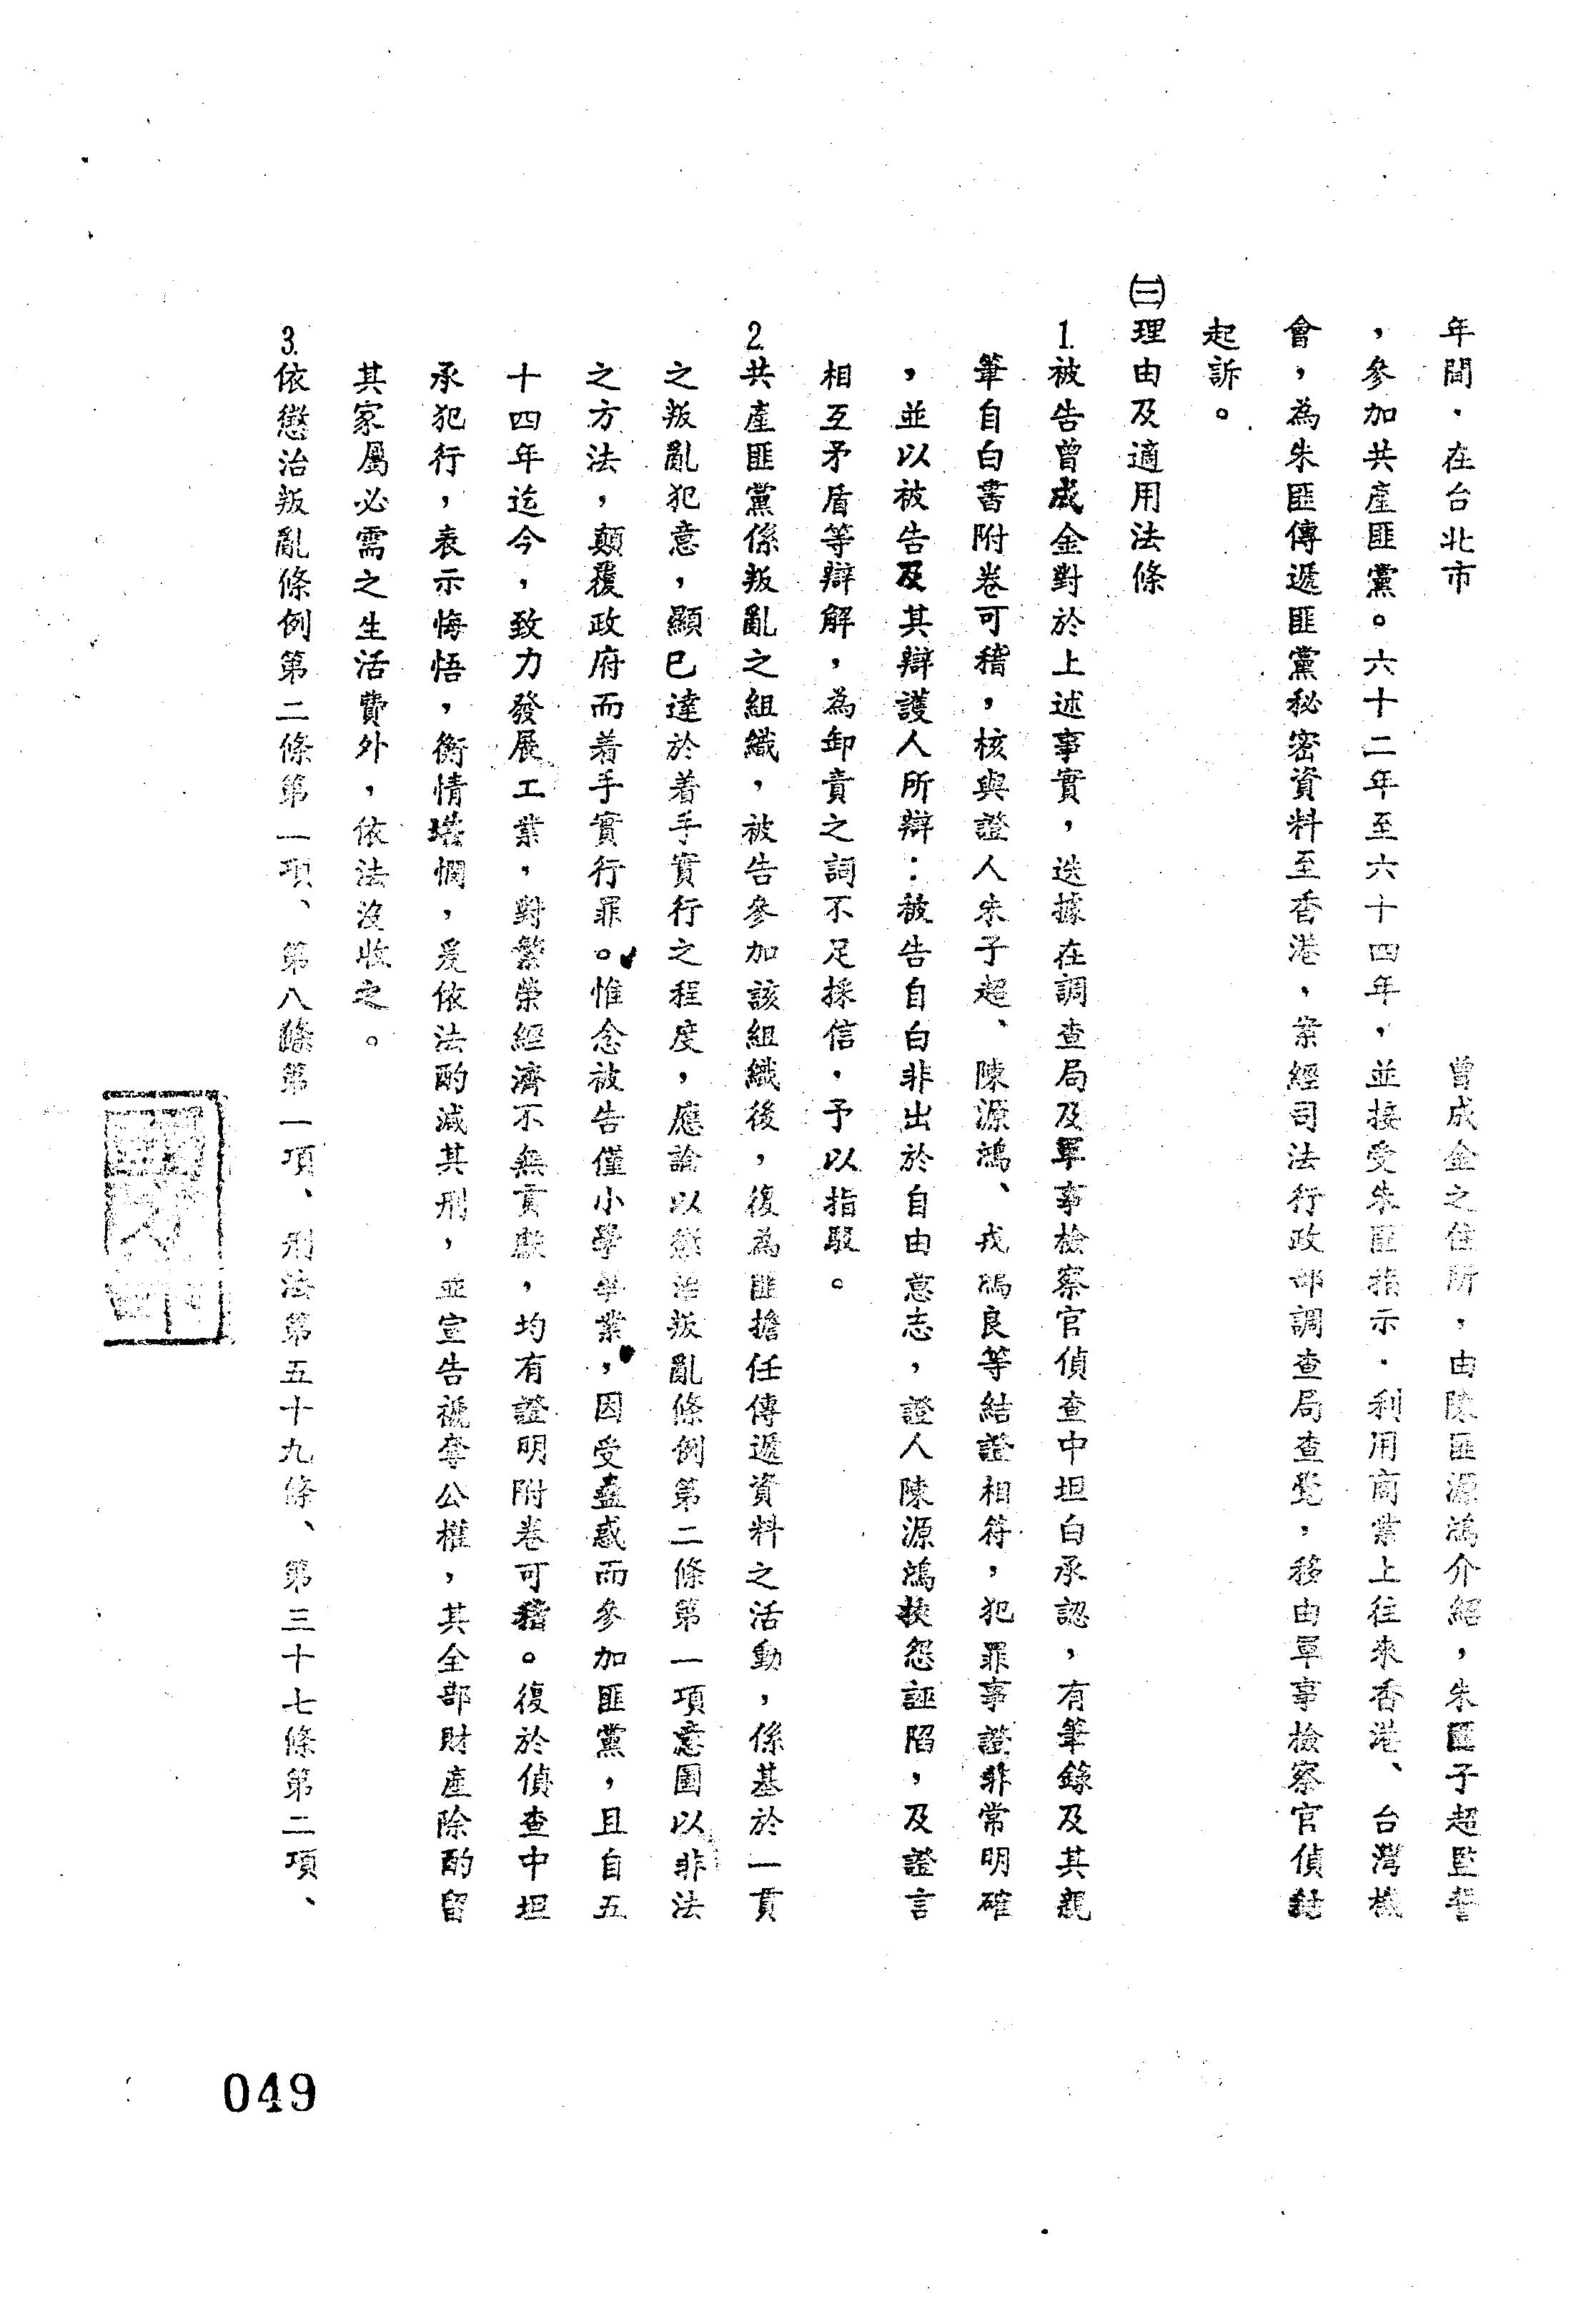 年間，在台北市　　　　　　　　　　　曾成金之住所，由陳匪源鴻介紹，朱匪子超監誓
，參加共產匪黨。六十二年至六十四年，並接受朱匪指示，利用商業上往來香港、台灣機
會，為朱匪傳遞匪黨秘密資料至香港，案經司法行政部調查局查覺，移由軍事檢察官偵結
起訴。
㈢理由及適用法條
1.被告曾成金對於上述事實，迭據在調查局及軍事檢察官偵查中坦白承認，有筆錄及其親
筆自白書附卷可稽，核與證人朱子超、陳源鴻、戎鴻良等結證相符，犯罪事證非常明確
，並以被告及其辯護人所辯：被告自白非出於自由意志，證人陳源鴻挾怨誣陷，及證言
相互矛盾等辯解，為卸責之詞不足採信，予以指駁。
2.共產匪黨係叛亂之組織，被告參加該組織後，復為匪擔任傳遞資料之活動，係基於一貫
之叛亂犯意，顯已達於着手實行之程度，應論以懲治叛亂條例第二條第一項意圖以非法
之方法，顛覆政府而着手實行罪。惟念被告僅小學畢業，因受蠱惑而參加匪黨，且自五
十四年迄今，致力發展工業，對繁榮經濟不無貢獻，均有證明附卷可稽。復於偵查中坦
承犯行，表示悔悟，衡情堪憫，爰依法酌減其刑，並宣告褫奪公權，其全部財產除酌留
其家屬必需之生活費外，依法沒收之。
3.依懲治叛亂條例第二條第一項、第八條第一項、刑法第五十九條、第三十七條第二項、
049